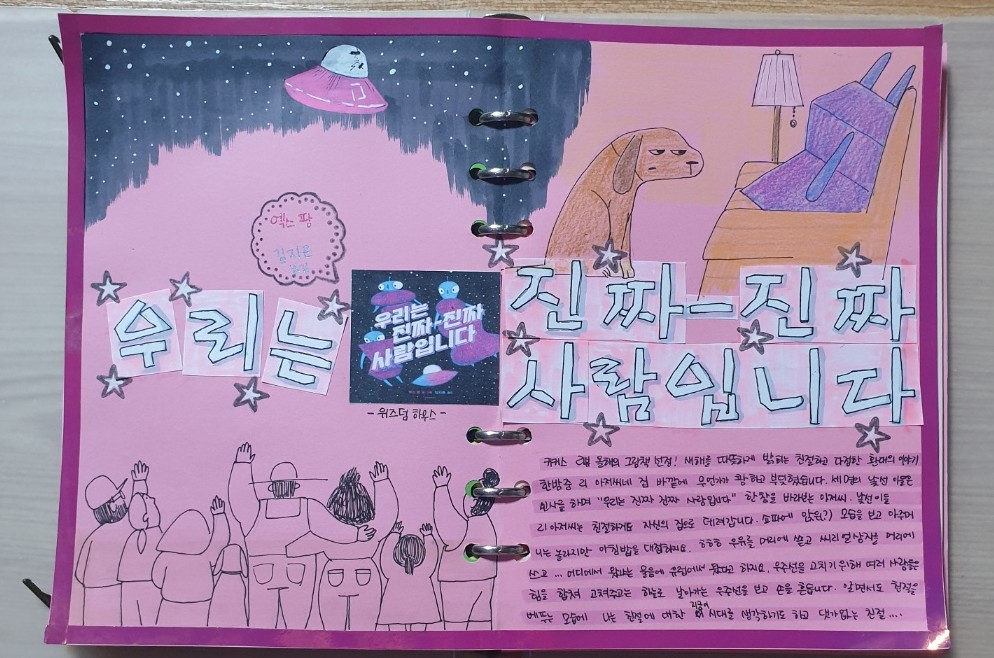 엑스 팡
김지은
옮김
우리는
우리는
진짜-진짜
사람입니다
- 위즈덤 하우스 -
진짜-진짜
사람입니다
커커스 리뷰 올해의 그림책 선정! 새해를 따뜻하게 밝히는 친절하고 다정한 환대의 이야기
한밤중 리 아저씨네 집 바깥에 무언가 쾅하고 부딪혔습니다. 세 명의 낯선 이들은
인사를 하며 "우리는 진짜 진짜 사람입니다" 한참을 바라보는 아저씨. 낯선 이들
리 아저씨는 친절하게도 자신의 집으로 데려갑니다. 소파에 앉은(?) 모습을 보고 아주머
니는 놀라지만 아침밥을 대접하지요. ㅎㅎㅎ 우유를 머리에 쏟고 씨리얼 상자를 머리에
쓰고... 어디에서 왔냐는 물음에 유럽에서 왔다고 하지요. 우주선을 고치기 위해 여러 사람들은
힘을 합쳐 고쳐주고는 하늘로 날아가는 우주선을 보고 손을 흔듭니다. 알면서도 친절을
베푸는 모습에 나는 친절에 대한 지금이 시대를 생각하기도 하고 댓가없는 친절....